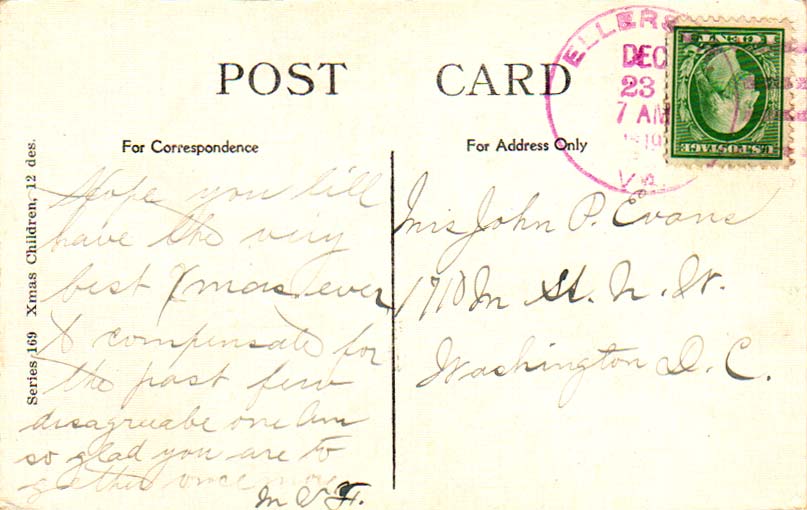 POST CARD
For Correspondence
For Address Only
Series 169 Xmas Children, 12 des.
ELLERS
DEC
23
7 AM
191
VA.
U.S. POSTAGE
1 CENT 1
Hope you will
have the very
best Xmas ever
& compensate for
the past few
disagreabe one Am
so glad you are to
gether once more
Mrs John P. Evans
1710 M St. N. W.
Washington D. C.